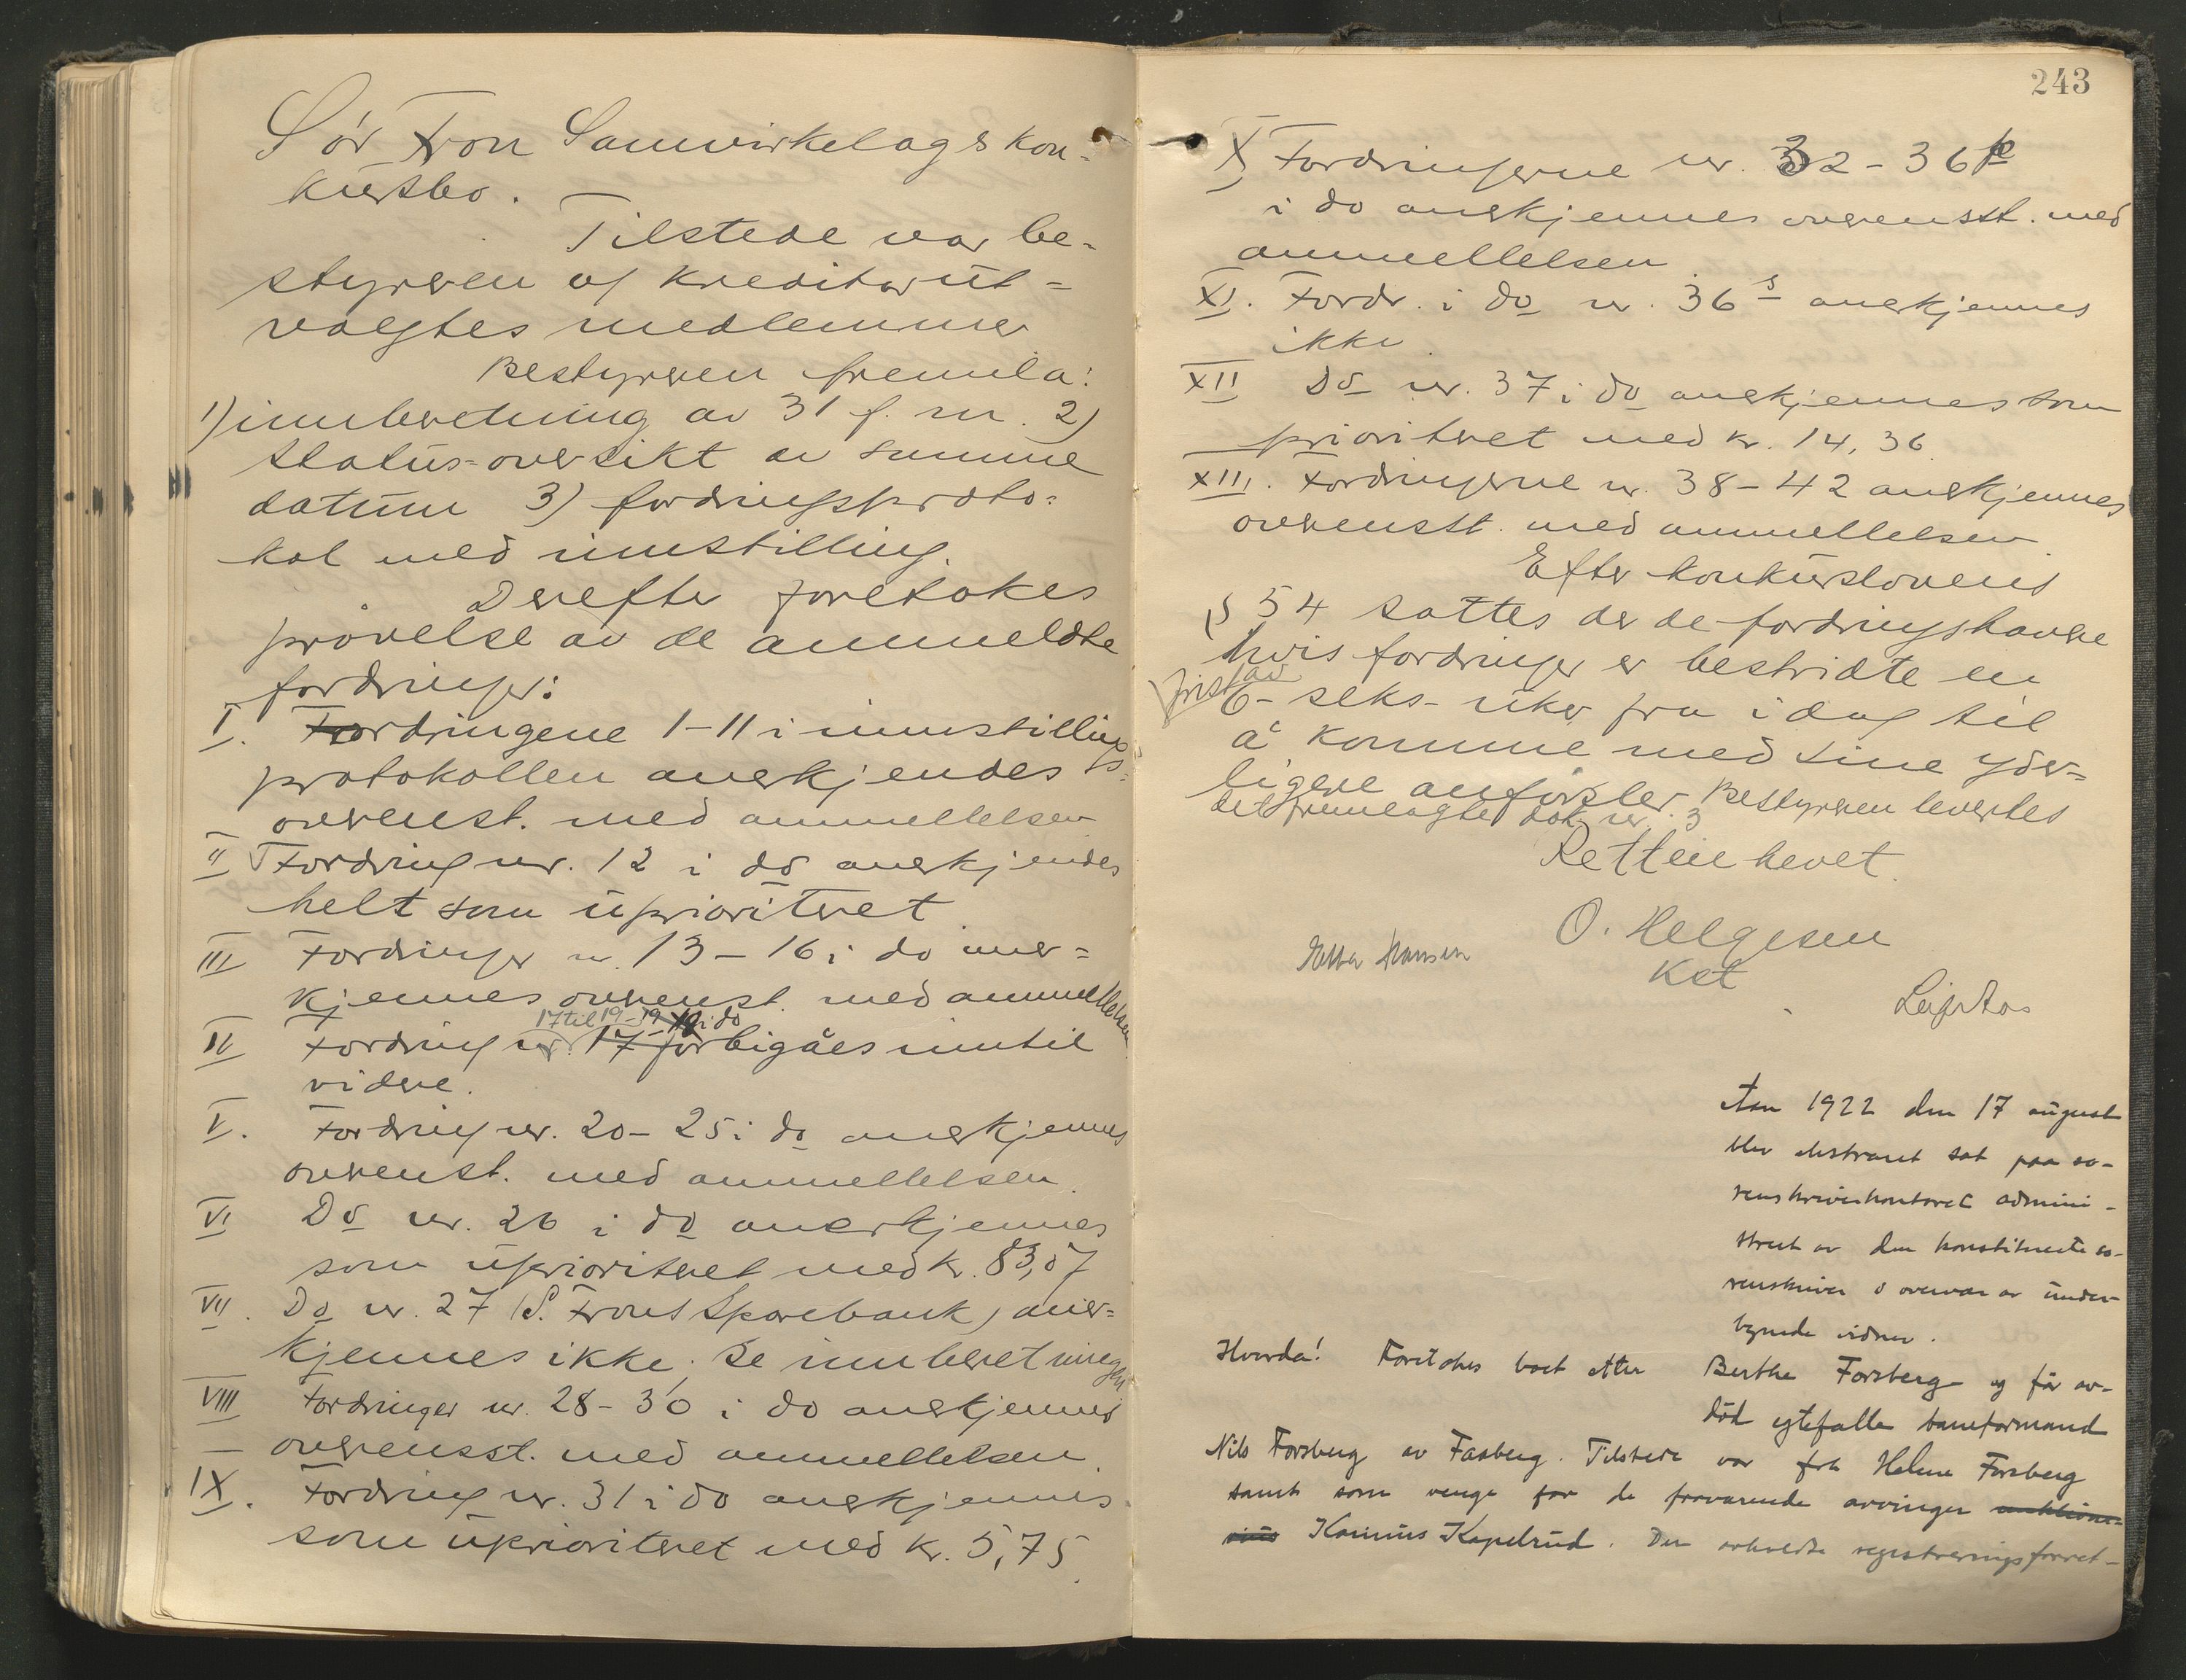 Sør Fron Samvirkelags kon-
kursbo.
Tilstede var be-
styreren og kreditorut-
valgtes medlemmer
Bestyreren fremla:
1) innberetning av 31 f. m. 2)
status-oversikt av samme
datum 3) fordringsproto-
kol med innstilling.
Derefter foretokes
prøvelse av de anmeldte
fordringer:
I. Fordringene 1-11 i innstillings-
protokollen anerkjendes
overenst. med anmeldelsen
II Fordring nr. 12 i do anerkjendes
helt som uprioritert
III Fordringer nr. 13-16 i do aner-
kjennes overenst. med anmeldelsen
17 til 19 i do
IV Fordring nr. 17 forbigåes inntil
videre.
V. Fordring nr. 20-25 i do anerkjennes
overenst. med anmeldelsen.
VI Do nr. 26 i do anerkjennes
som uprioritert med kr. 83,07
VII. Do nr. 27 (S. Frons Sparebank) aner-
kjennes ikke. Se innberetningen
VIII Fordringer nr. 28-30 i do anerkjennes
overensst. med anmeldelsen.
IX. Fordring nr. 31 i do anerkjennes
som uprioritert med kr. 5,75.
243
X, Fordringerne nr. 32-36
i do anerkjennes overensst. med
anmeldelsen
XI. Fordr. i do nr. 36 s anerkjennes
ikke.
XII Do nr. 37 i do anerkjennes som
prioritert med kr. 14,36
XIII. Fordringerne nr. 38-42 anerkjennes
overensst. med anmeldelsen.
Efter konkurslovens
§ 54 sattes der de fordringshavere
hvis fordringer er bestridte en
frist av
6- seks- uker fra idag til
å komme med sine yder-
ligere anførsler. Bestyreren levertes
det fremlagte dok. nr. 3
Retten hevet.
O. Helgesen
Kst
Hansen
Leif Aas
Aar 1922 den 17 august
blev ekstraret sat paa so-
renskriverkontoret admini-
strert av den konstituerte so-
renskriver i overvær av under-
tegnede vidner.
Hvorda! Foretokes boet etter Berthe Forsberg og før av-
død egtefælle baneformand
Nils Forsberg av Faaberg. Tilstede var frk Helene Forsberg
samt som verge for de fraværende arvinger auktions-
rius Karinius Kapelrud. Den avholdte registreringsforret-